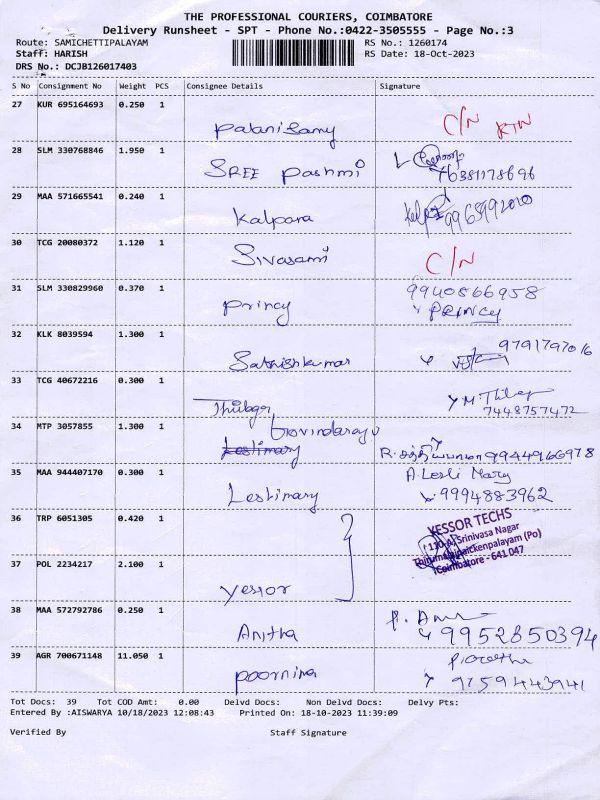 THE PROFESSIONAL COURIERS, COIMBATORE
Delivery Runsheet - SPT - Phone No.:0422-3505555 - Page No.:3
Route: SAMICHETTIPALAYAM RS No.: 1260174
Staff: HARISH RS Date: 18-Oct-2023
DRS No.: DCJB126017403
S No Consignment No Weight PCS Consignee Details Signature
27 KUR 695164693 0.250 1
Palanisamy C/N RTN
28 SLM 330768846 1.950 1
SREE Pashmi 76381178696
29 MAA 571665541 0.240 1
Kalpana
30 TCG 20080372 1.120 1
Sivasami C/N
31 SLM 330829960 0.370 1 9940866958
Princy PRINCY
32 KLK 8039594 1.300 1 9791797016
Sathishkumar
33 TCG 40672216 0.300 1
7448757472
34 MTP 3057855 1.300 1 Govindaraju
Leslimary 9944966978
35 MAA 944407170 0.300 1 A. Lesli Mary
Leslimary 9994883962
36 TRP 6051305 0.420 1 YESSOR TECHS
110-A, Srinivasa Nagar
37 POL 2234217 2.100 1 Coimbatore - 641 047
Yesior
38 MAA 572792786 0.250 1
Anitha 9952850394
39 AGR 700671148 11.050 1
Poornima 9159443941
Tot Docs: 39 Tot COD Amt: 0.00 Delvd Docs: Non Delvd Docs: Delvy Pts:
Entered By :AISWARYA 10/18/2023 12:08:43 Printed On: 18-10-2023 11:39:09
Verified By Staff Signature